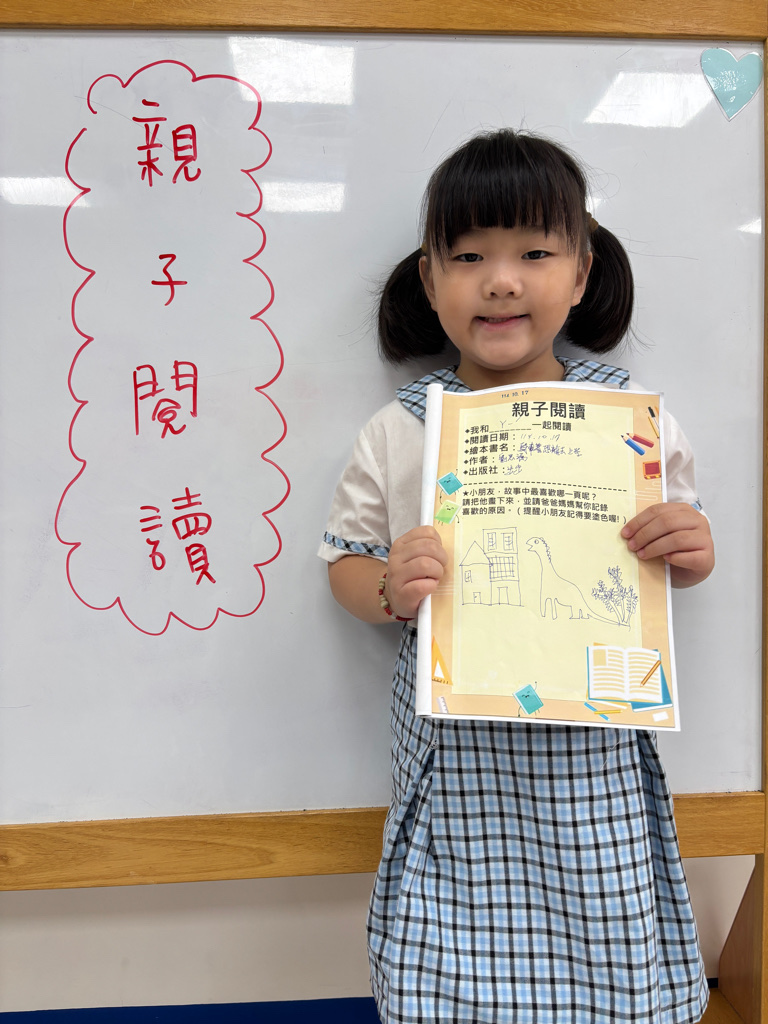 親
子
閱
讀
114.10.17
親子閱讀
◆我和 一起閱讀
◆閱讀日期：114.10.17
◆繪本書名：
◆作者：
◆出版社：
★小朋友，故事中最喜歡哪一頁呢？
請把他畫下來，並請爸爸媽媽幫你記錄
喜歡的原因。（提醒小朋友記得要塗色喔!）